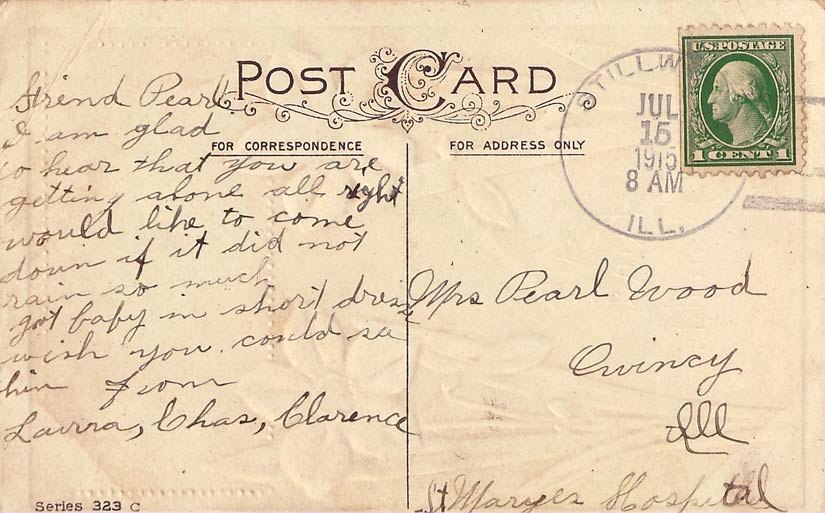 POST CARD
FOR CORRESPONDENCE
FOR ADDRESS ONLY
U.S. POSTAGE
1 CENT 1
STILLW
JUL
15
1915
8 AM
ILL.
Friend Pearl
I am glad
to hear that you are
getting alone all right
would like to come
down if it did not
rain so much
got baby in short dress
wish you could see
him from
Laura, Chas, Clarence
Mrs Pearl Wood
Quincy
Ill
St Maryes Hospital
Series 323 C